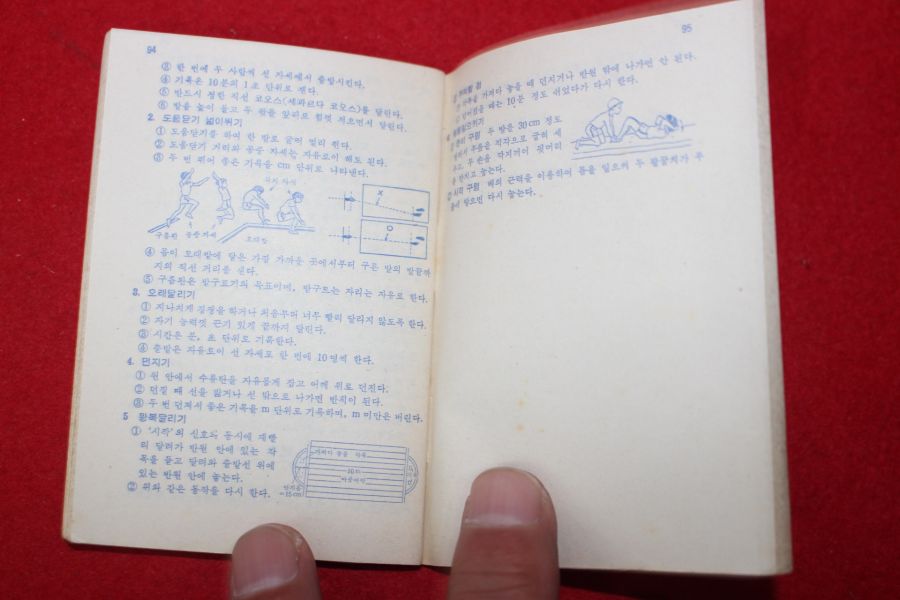 94
③ 한 번에 두 사람씩 선 자세에서 출발시킨다.
④ 기록은 10분의 1초 단위로 잰다.
⑤ 반드시 정한 직선 코오스(세파르다 코오스)를 달린다.
⑥ 발을 높이 들고 두 팔을 앞뒤로 힘껏 저으면서 달린다.
2. 도움닫기 넓이뛰기
① 도움닫기를 하여 한 발로 굴러 멀리 뛴다.
② 도움닫기 거리와 공중 자세는 자유로이 해도 된다.
③ 두 번 뛰어 좋은 기록을 cm 단위로 나타낸다.
착지 자세
구름판 공중 자세
모래밭
④ 몸이 모래밭에 닿은 가장 가까운 곳에서부터 구른 발의 발끝까
지의 직선 거리를 잰다.
⑤ 구름판은 발구르기의 목표이며, 발구르는 자리는 자유로 한다.
3. 오래달리기
① 지나치게 긴장을 하거나 처음부터 너무 빨리 달리지 않도록 한다.
② 자기 능력껏 끈기 있게 끝까지 달린다.
③ 시간은 분, 초 단위로 기록한다.
④ 출발은 자유로이 선 자세로 한 번에 10명씩 한다.
4. 던지기
① 원 안에서 수류탄을 자유롭게 잡고 어깨 위로 던진다.
② 던질 때 선을 밟거나 선 밖으로 나가면 반칙이 된다.
③ 두 번 던져서 좋은 기록을 m 단위로 기록하며, m 미만은 버린다.
5 왕복달리기
① '시작'의 신호와 동시에 재빨
리 달려가 반원 안에 있는 각
목을 들고 달려와 출발선 위에
있는 반원 안에 놓는다.
② 위와 같은 동작을 다시 한다.
10m
95
나무토막을 가져다 놓을 때 던지거나 반원 밖에 나가면 안 된다.
때는 10분 정도 쉬었다가 다시 한다.
두 발을 30cm 정도
무릎을 직각으로 굽혀 세
우고, 두 손을 깍지끼어 뒷머리
에 놓는다.
배의 근력을 이용하여 몸을 일으켜 두 팔꿈치가 무
릎에 닿으면 다시 눕는다.